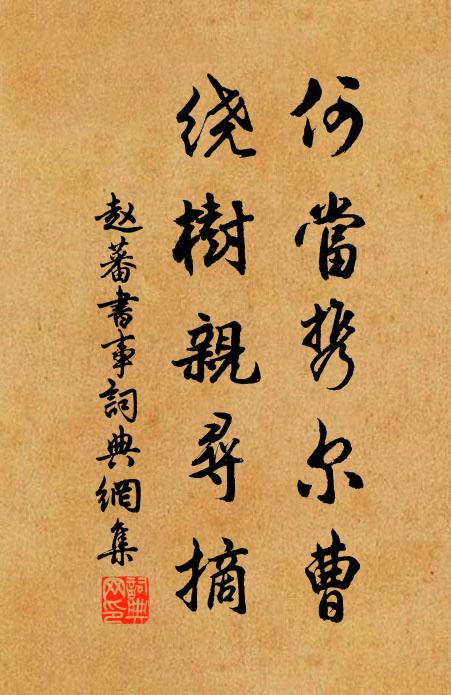 何當携尔曹
绕樹親尋摘
赵蕃書事詞典網集
詞典网印